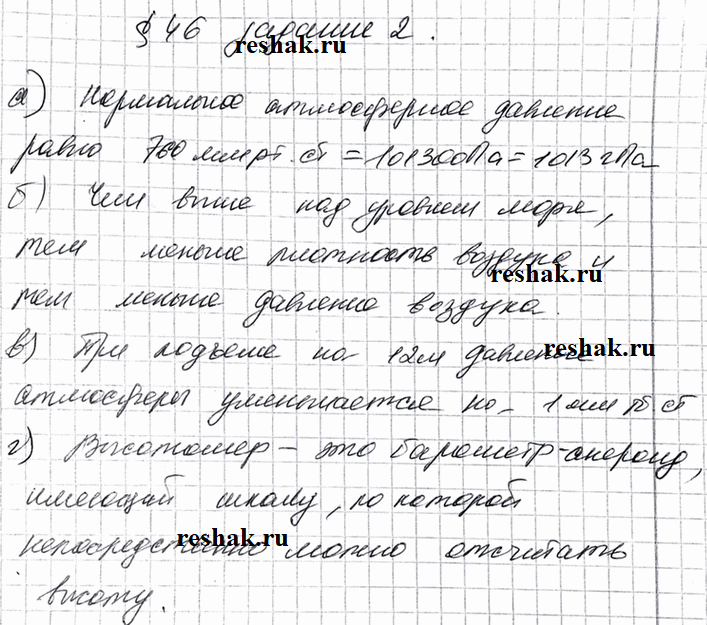 § 46 задание 2.
reshak.ru
а) Нормальное атмосферное давление
равно 760 мм рт. ст = 101300 Па = 1013 гПа
б) Чем выше над уровнем моря,
тем меньше плотность воздуха и
reshak.ru
тем меньше давление воздуха.
в) При подъеме на 12м давление
reshak.ru
атмосферы уменьшается на 1 мм рт ст
г) Высотомер – это барометр-анероид,
имеющий шкалу, по которой
непосредственно можно отсчитать
reshak.ru
высоту.